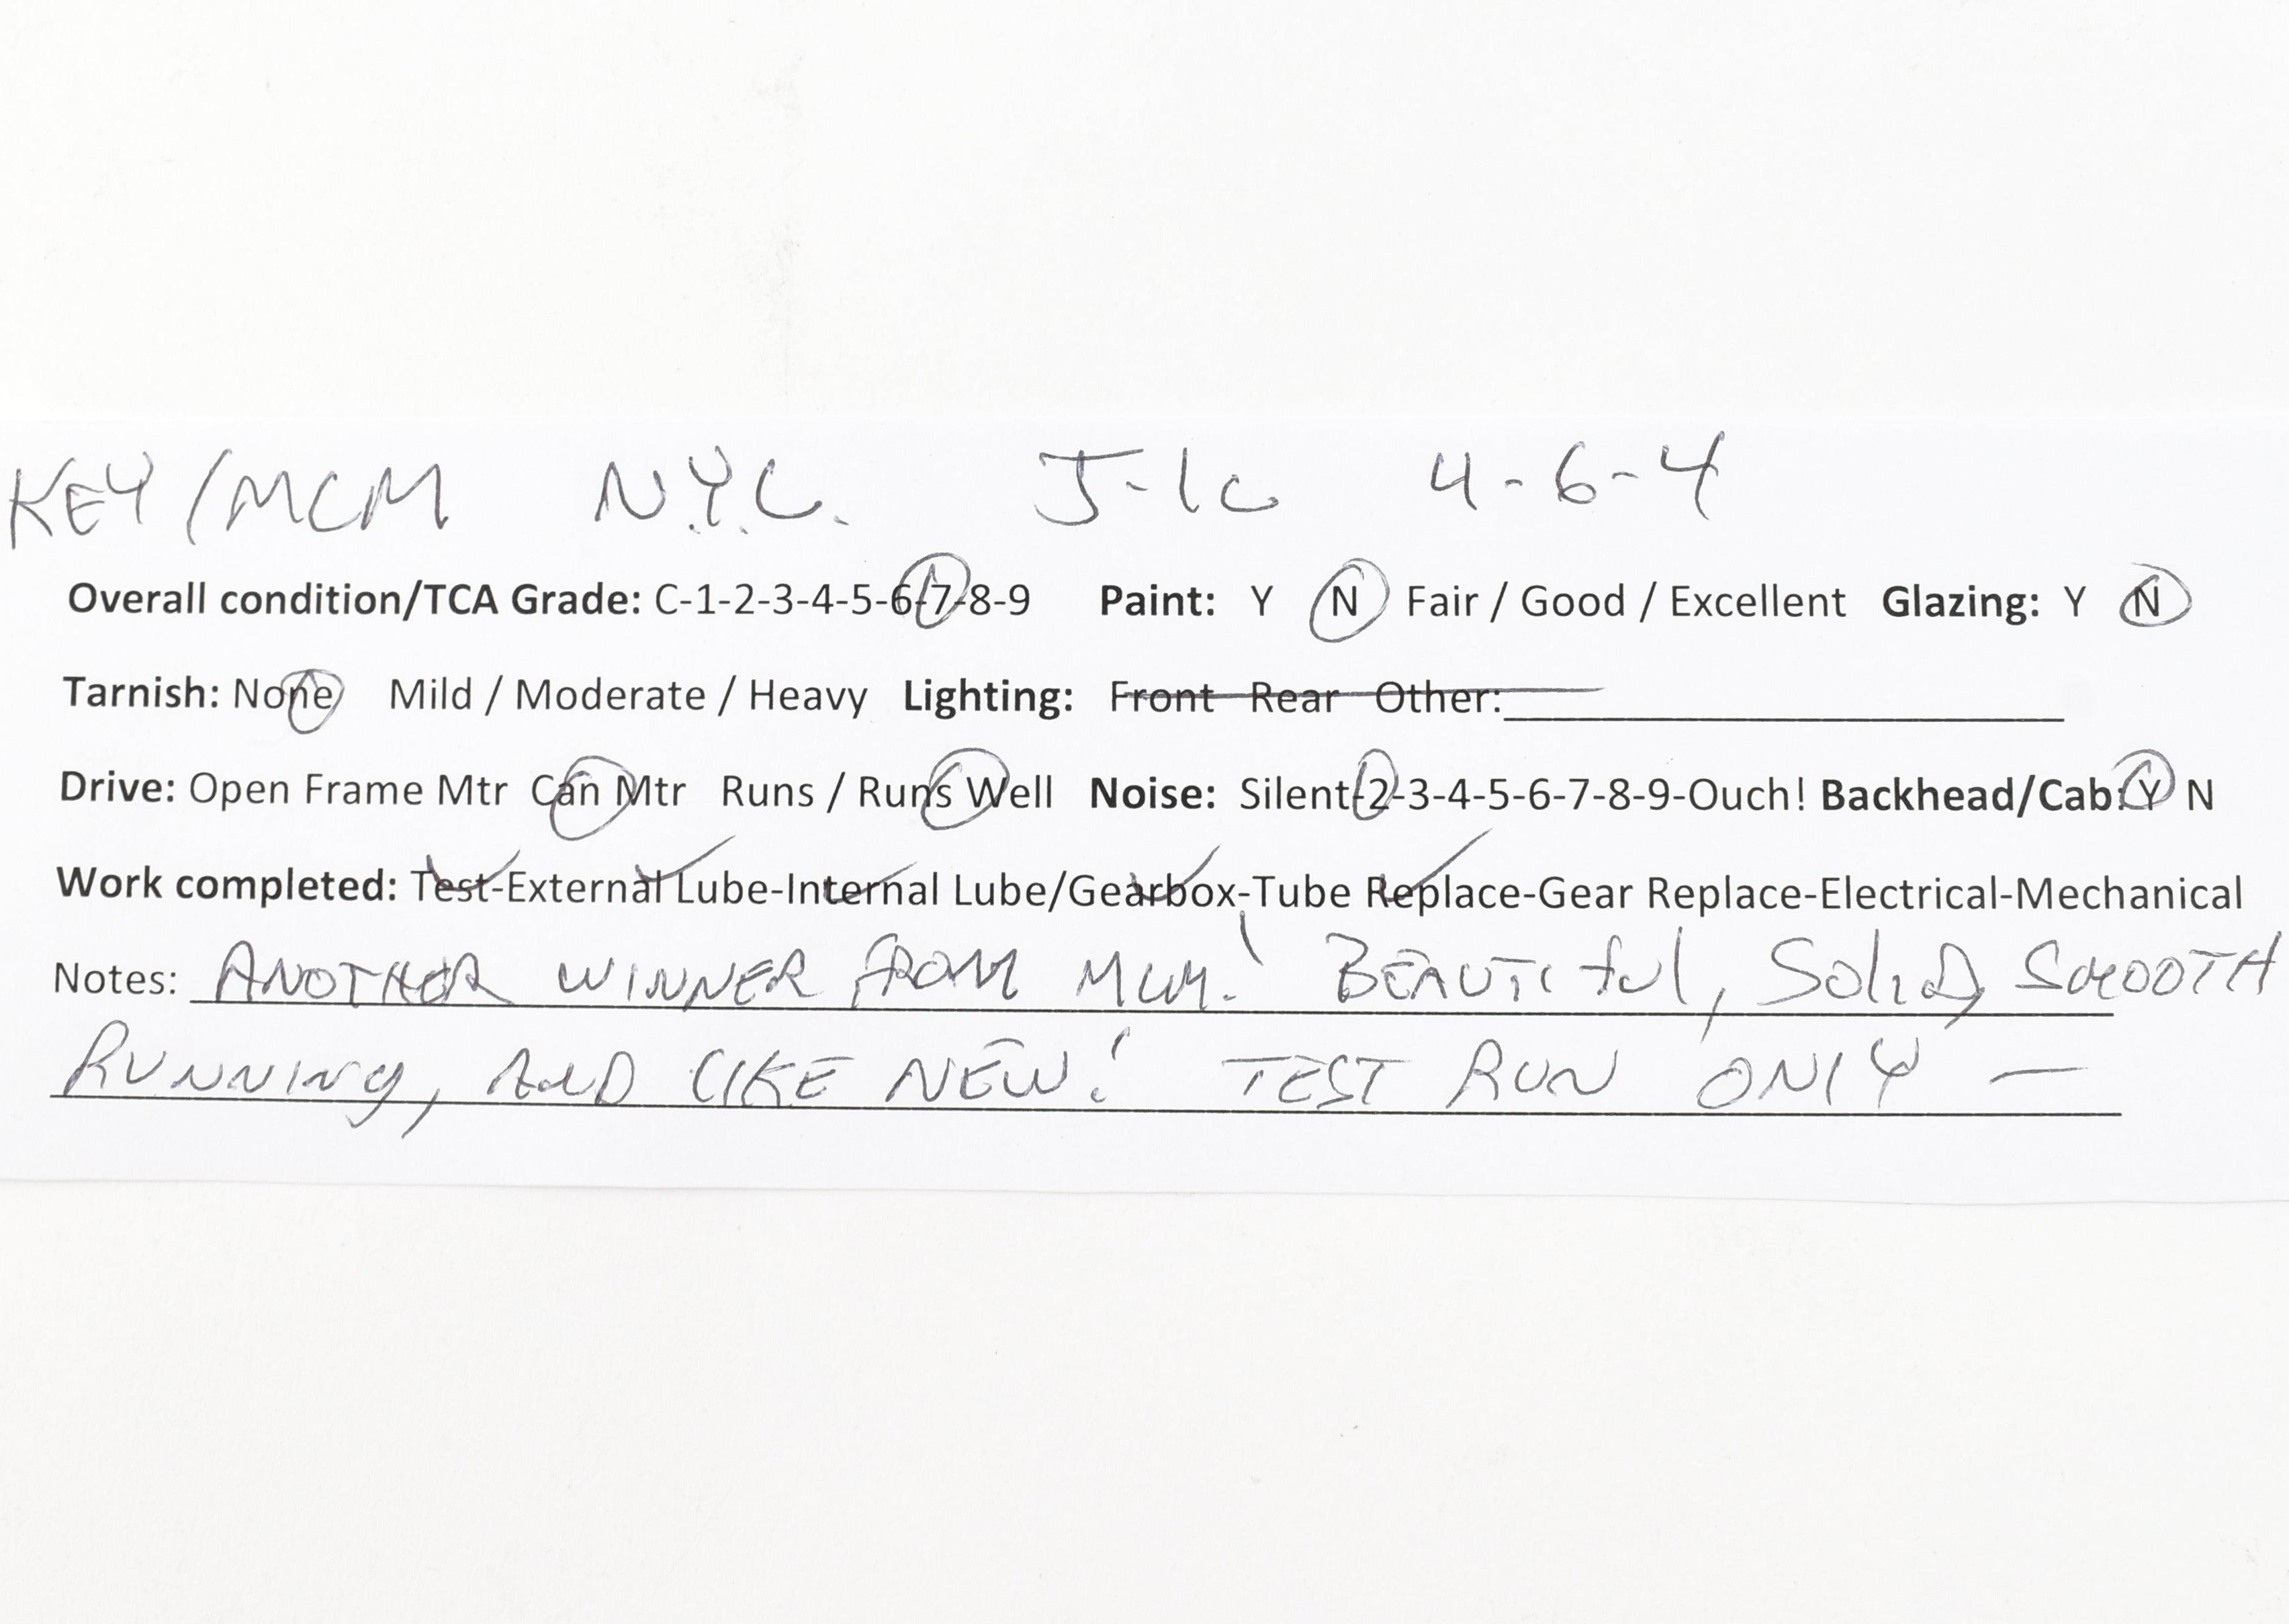 KEY/MCM N.Y.C. J-1c 4-6-4
Overall condition/TCA Grade: C-1-2-3-4-5-6-7-8-9 Paint: Y N Fair / Good / Excellent Glazing: Y N
Tarnish: None Mild / Moderate / Heavy Lighting: Front Rear Other:
Drive: Open Frame Mtr Can Mtr Runs / Runs Well Noise: Silent-2-3-4-5-6-7-8-9-Ouch! Backhead/Cab: Y N
Work completed: Test-External Lube-Internal Lube/Gearbox-Tube Replace-Gear Replace-Electrical-Mechanical
Notes: ANOTHER WINNER FROM MCM! BEAUTIFUL, SOLID, SMOOTH
RUNNING, AND LIKE NEW! TEST RUN ONLY —